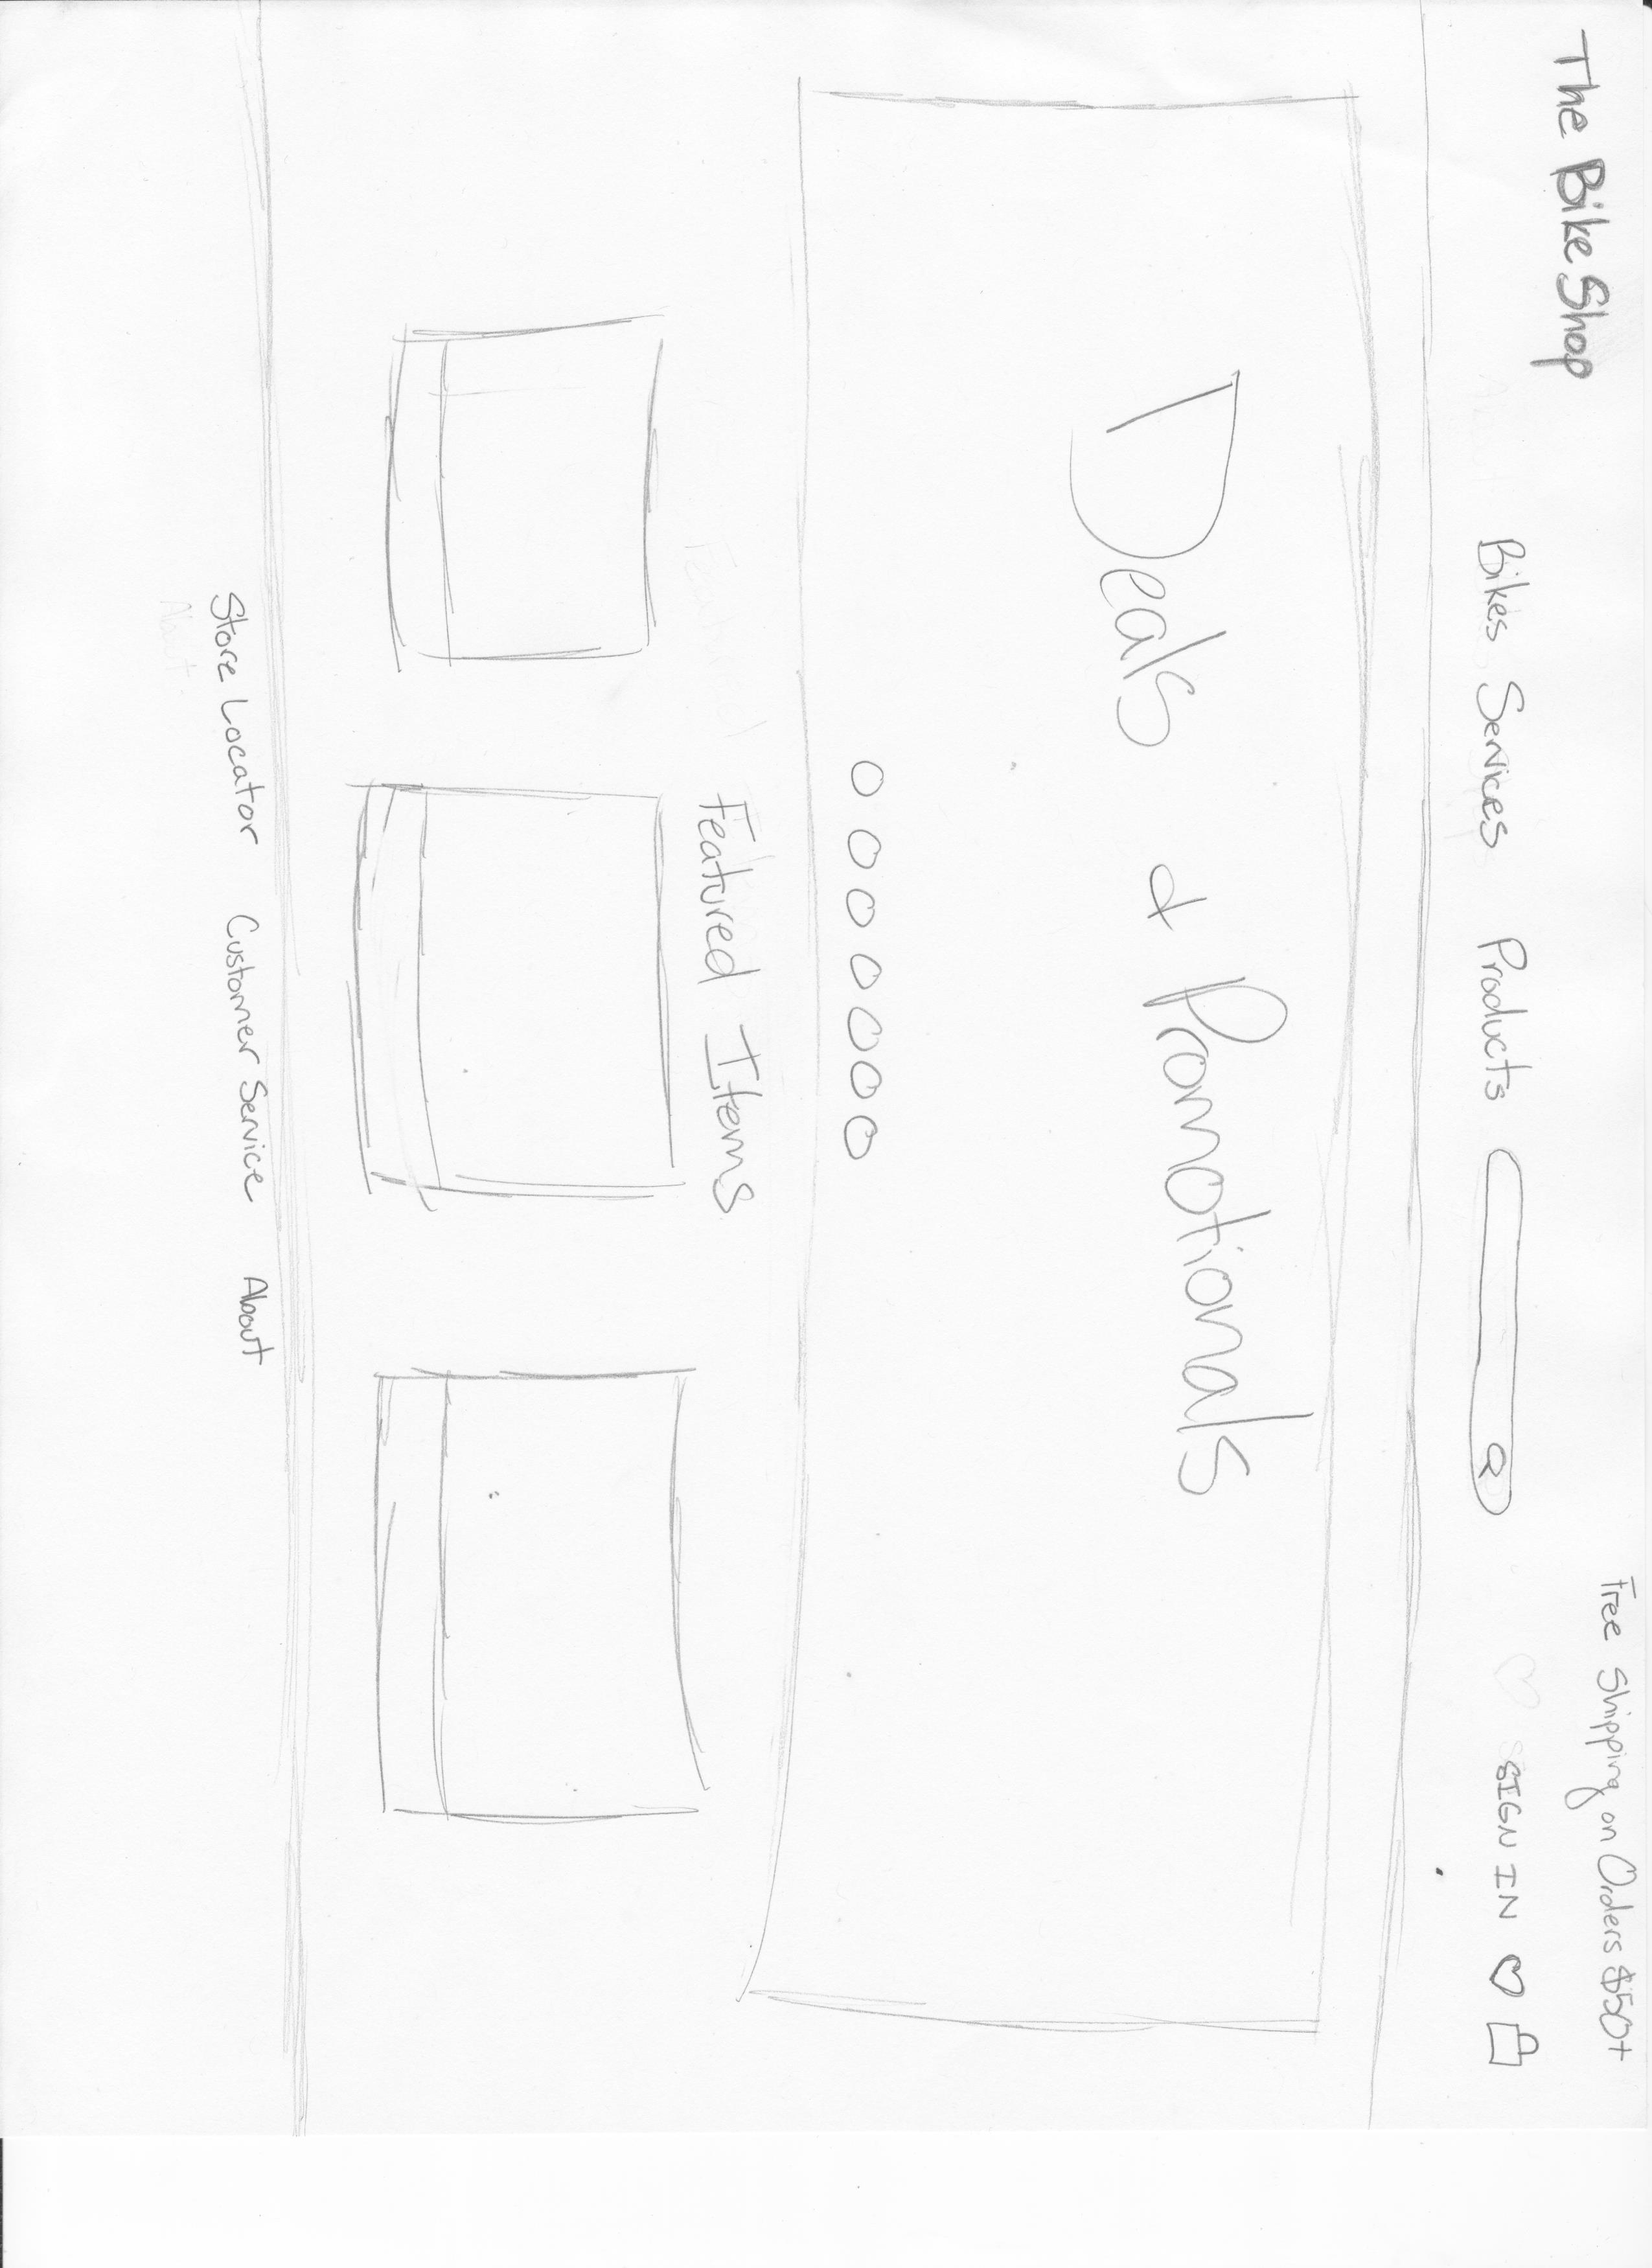 Free Shipping on Orders $50+
The Bike Shop
Bikes Services Products
SIGN IN
Deals & Promotionals
Featured Items
Store Locator Customer Service About